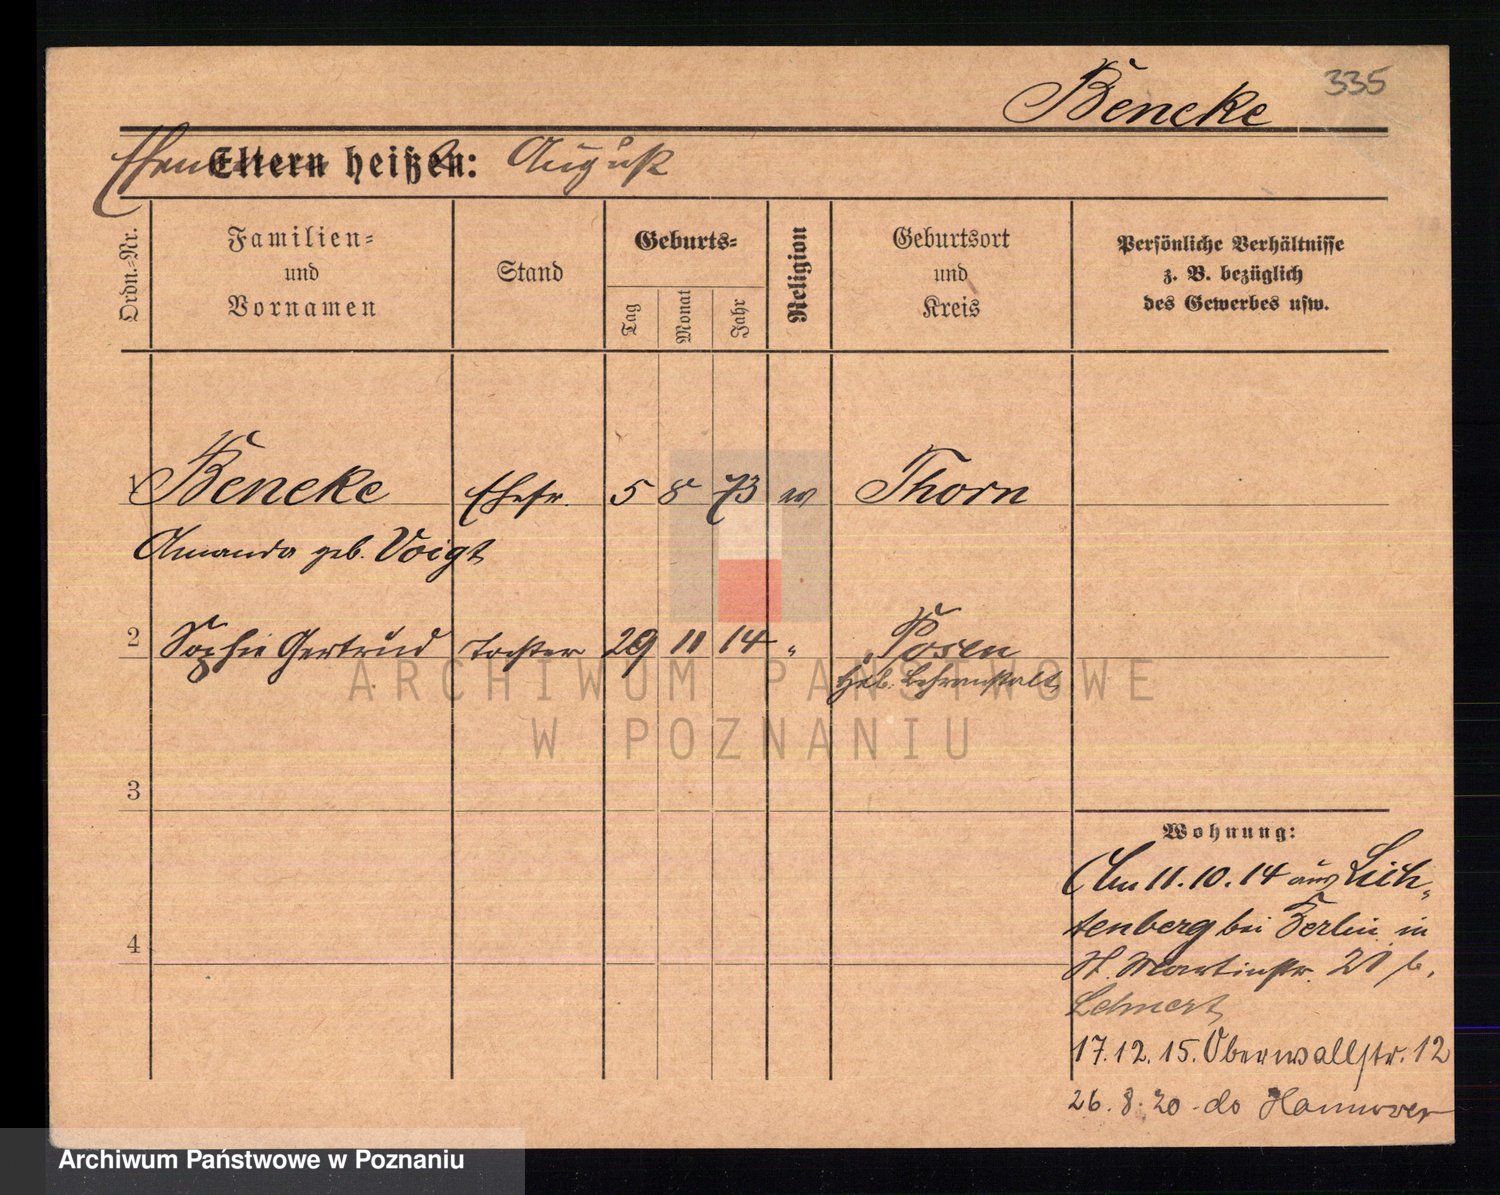 335
Bencke
Eltern heißen: August
Ordn.-Nr.
Familien-
und
Vornamen
Stand
Geburts-
Tag
Monat
Jahr
Religion
Geburtsort
und
Kreis
Persönliche Verhältnisse
z. B. bezüglich
des Gewerbes usw.
1 Bencke Ehefr. 5 8 73 ev Thorn
Amanda geb. Voigt
2 Sophie Gertrud Tochter 29 11 14 " Posen
Heb. Lehranstalt
3
4
Wohnung:
Am 11.10.14 aus Lich-
tenberg bei Berlin in
St. Martinstr. 20 b.
Lehnert
17.12.15. Oberwallstr. 12
26.8.20 - do Hannover
ARCHIWUM PAŃSTWOWE
W POZNANIU
Archiwum Państwowe w Poznaniu